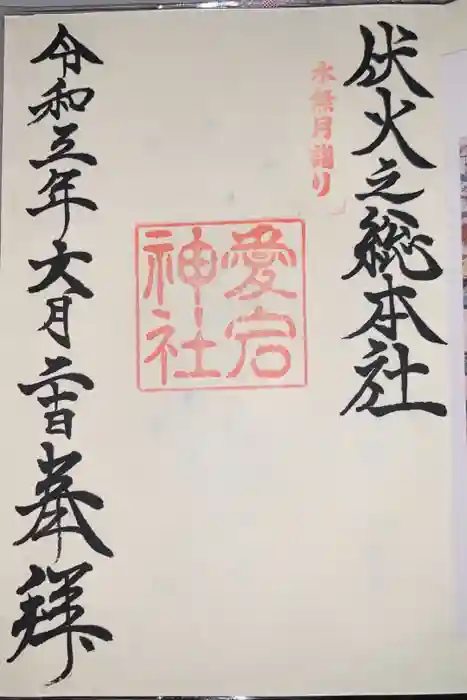 伏火之総本社
水無月詣り
愛宕
神社
令和三年六月二十日奉拝